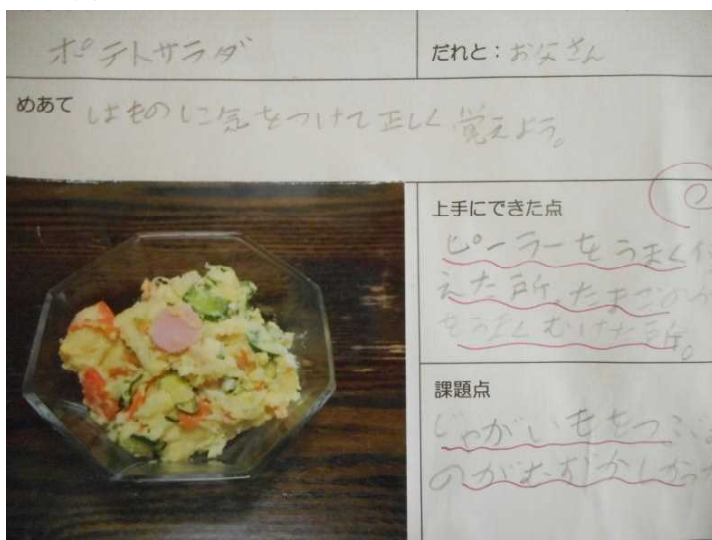 ポテトサラダ
だれと：お父さん
めあて はものに気をつけて正しく覚えよう。
上手にできた点
ピーラーをうまく使
えた所。たまごのか
をうまくむけた所。
課題点
じゃがいもをつぶす
のがむずかしかっ